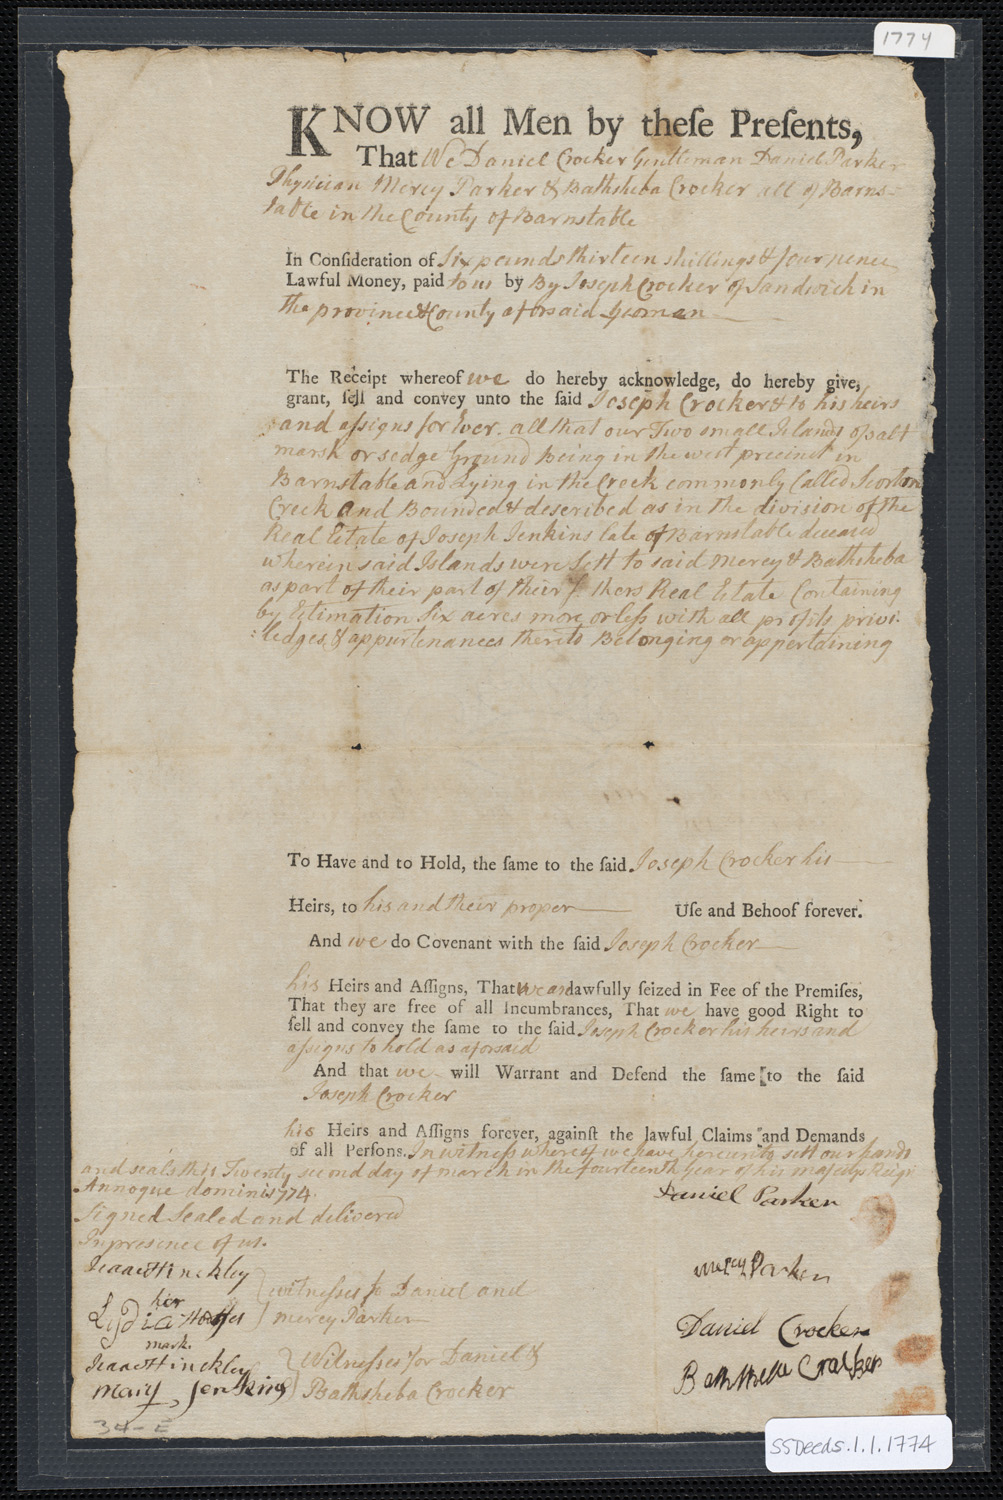 1774
KNOW all Men by theſe Preſents,
That We Daniel Crocker Gentleman Daniel Parker
Physician Mercy Parker & Bathsheba Crocker all of Barns-
table in the County of Barnstable
In Conſideration of Six pounds thirteen shillings & four pence
Lawful Money, paid to us by By Joseph Crocker of Sandwich in
the province & County aforsaid yeoman
The Receipt whereof we do hereby acknowledge, do hereby give,
grant, ſell and convey unto the ſaid Joseph Crocker & to his heirs
and aſsigns for Ever. all that our Two small Islands of salt
marsh or sedge Ground Being in the west precinct in
Barnstable and Lying in the Creek commonly Called Scorton
Creek and Bounded & described as in the division of the
Real Estate of Joseph Jenkins late of Barnstable deceased
wherein said Islands were Sett to said Mercy & Bathsheba
as part of their part of their fathers Real Estate Containing
by Estimation Six acres more or leſs with all profits privi-
:ledges & appurtenances thereto Belonging or appertaining
To Have and to Hold, the ſame to the ſaid Joseph Crocker his
Heirs, to his and their proper Uſe and Behoof forever.
And we do Covenant with the ſaid Joseph Crocker
his Heirs and Aſſigns, That we are lawfully ſeized in Fee of the Premiſes,
That they are free of all Incumbrances, That we have good Right to
ſell and convey the ſame to the ſaid Joseph Crocker his heirs and
aſsigns to hold as aforsaid
And that we will Warrant and Defend the ſame to the ſaid
Joseph Crocker
his Heirs and Aſſigns forever, againſt the lawful Claims and Demands
of all Perſons. In witneſs whereof we have hereunto sett our hands
and seals this Twenty second day of march in the fourteenth year of his majestys Reign
Annoque domini 1774.
Signed Sealed and delivered
In presence of us.
Daniel Parker
Isaac Hinckley
her
Lydia
mark.
witneſses to Daniel and
mercy Parker
mercy Parker
Daniel Crocker
Isaac Hinckley
mary Jenkins
Witneſses for Daniel &
Bathsheba Crocker
Bathsheba Crocker
34-E
SSDeeds.1.1.1774